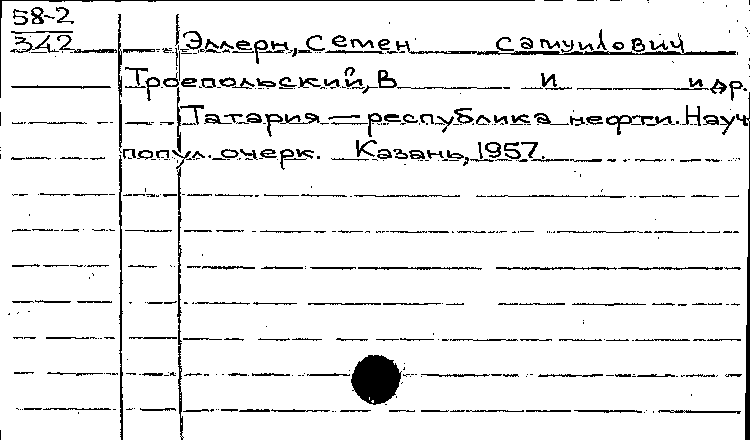 58-2
342
Эллерн, Семен Самуилович
Троепольский, В И и др.
Татария — республика нефти. Науч
попул. очерк. Казань, 1957.